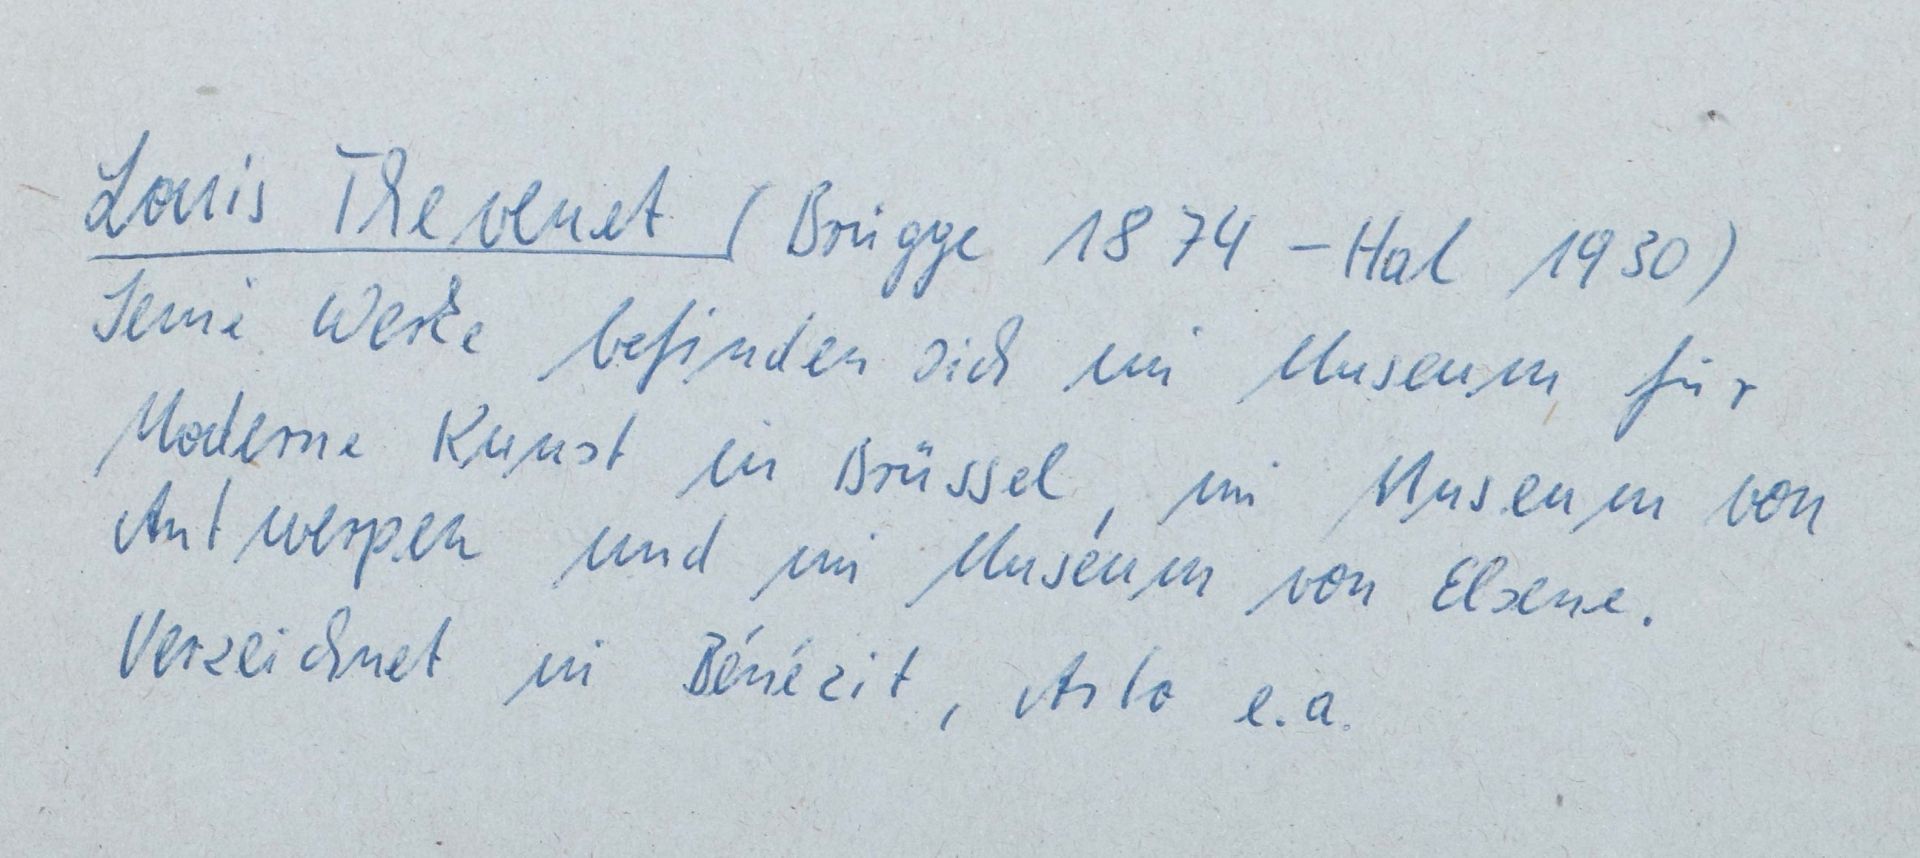 Louis Thevenet (Brügge 1874 - Hal 1930)
Seine Werke befinden sich im Museum für
Moderne Kunst in Brüssel, im Museum von
Antwerpen und im Museum von Elsene.
Verzeichnet in Bénézit, Arto e.a.